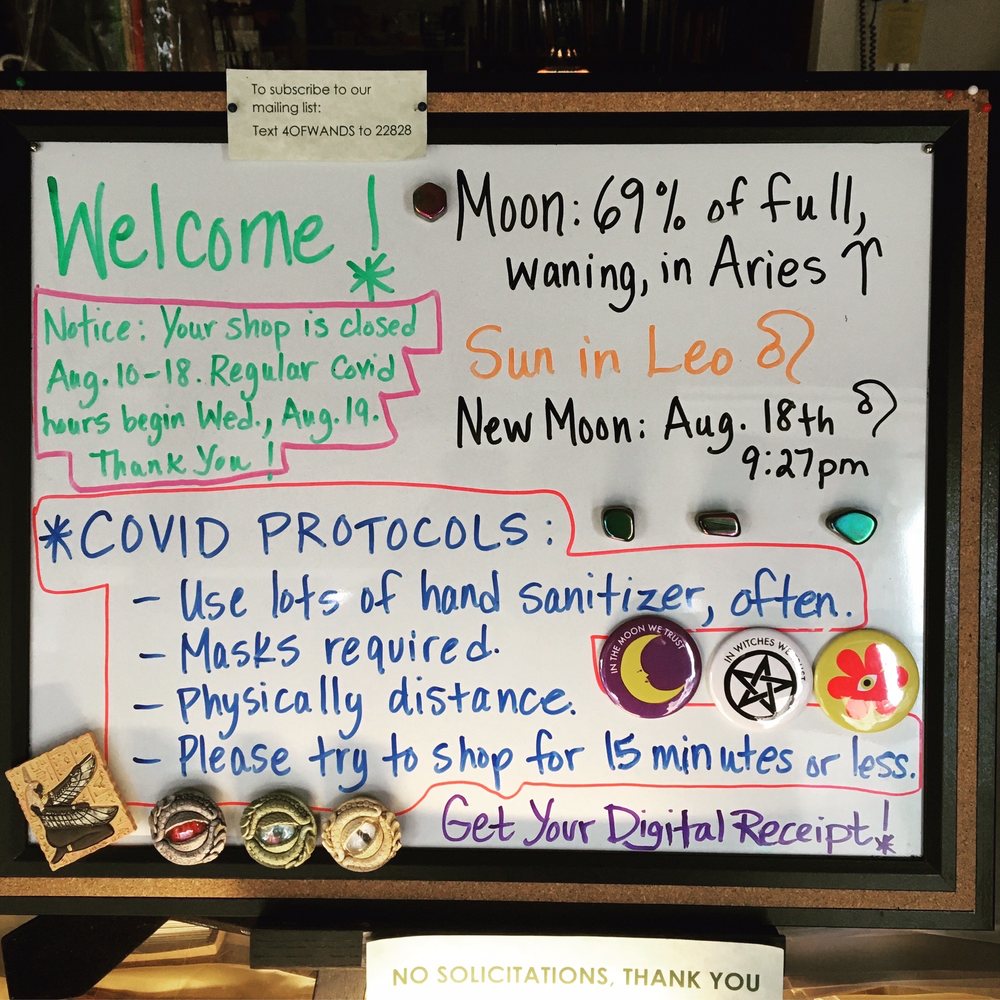 To subscribe to our
mailing list:
Text 4OFWANDS to 22828
Welcome!
*
Notice: Your shop is closed
Aug. 10-18. Regular Covid
hours begin Wed., Aug. 19.
Thank You!
Moon: 69% of full,
waning, in Aries ♈
Sun in Leo ♌
New Moon: Aug. 18th ♌
9:27pm
*COVID PROTOCOLS:
- Use lots of hand sanitizer, often.
- Masks required.
- Physically distance.
- Please try to shop for 15 minutes or less.
IN THE MOON WE TRUST
IN WITCHES WE TRUST
Get Your Digital Receipt!
*
NO SOLICITATIONS, THANK YOU